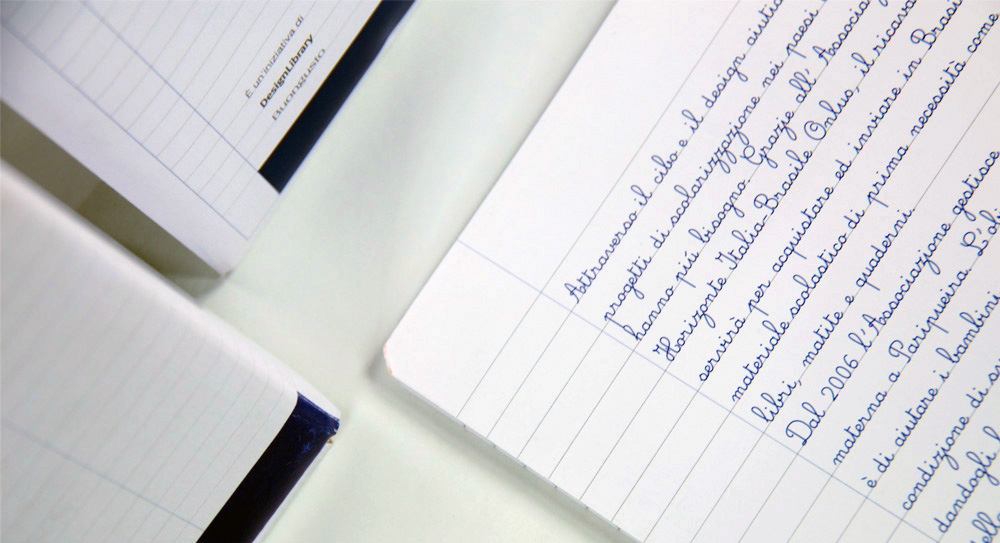 È un'iniziativa di
DesignLibrary
Buongusto
Attraverso il cibo e il design aiutia
progetti di scolarizzazione nei paesi
hanno più bisogno. Grazie all'Associa
Horizonte Italia-Brasile Onlus, il ricava
servirà per acquistare ed inviare in Brasi
materiale scolastico di prima necessità come
libri, matite e quaderni.
Dal 2006 l'Associazione gestisce
materna a Paripueira. L'obi
è di aiutare i bambini
condizione di
dandogli